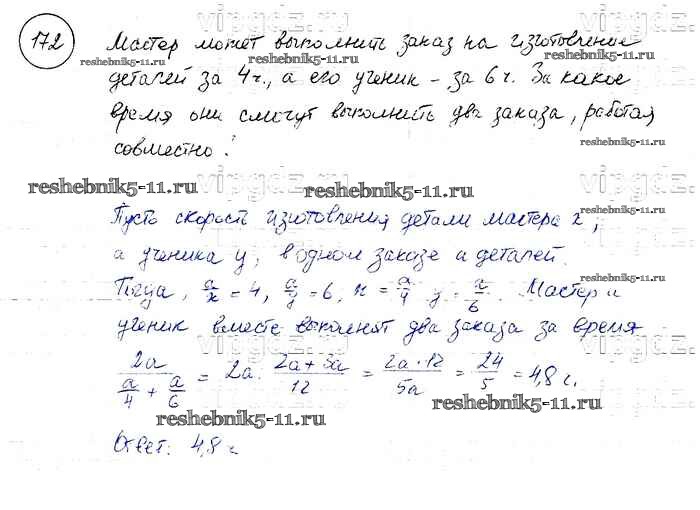 172 Мастер может выполнить заказ на изготовление
деталей за 4 ч., а его ученик – за 6 ч. За какое
время они смогут выполнить два заказа, работая
совместно?
Пусть скорость изготовления детали мастера x,
а ученика y, в одном заказе a деталей.
Тогда, a/x = 4, a/y = 6, x = a/4 y = x/6. Мастер и
ученик вместе выполнят два заказа за время
2a / (a/4 + a/6) = 2a · (2a + 3a)/12 = (2a · 12)/5a = 24/5 = 4,8 ч.
Ответ: 4,8 ч
reshebnik5-11.ru
reshebnik5-11.ru
reshebnik5-11.ru
reshebnik5-11.ru
reshebnik5-11.ru
reshebnik5-11.ru
reshebnik5-11.ru
reshebnik5-11.ru
reshebnik5-11.ru
vipgdz.ru
vipgdz.ru
vipgdz.ru
vipgdz.ru
vipgdz.ru
vipgdz.ru